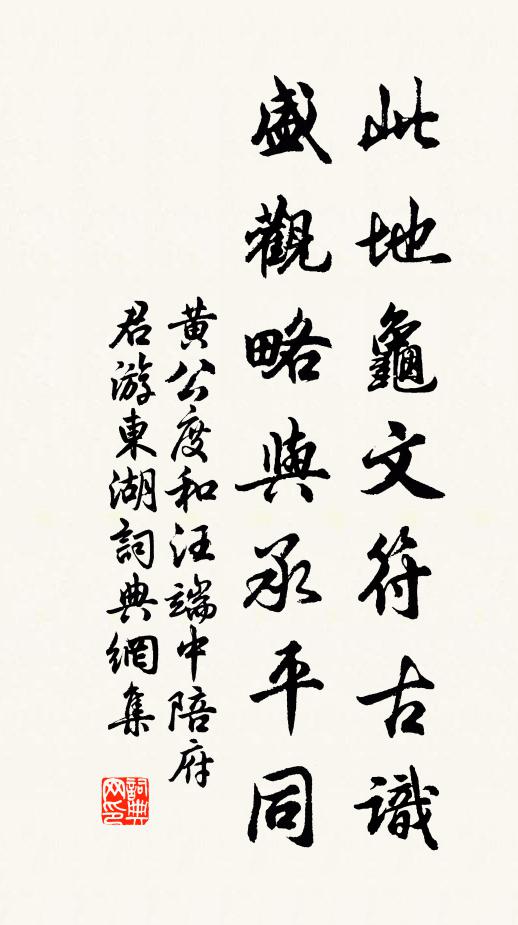 此地龜文符古識
盛觀略與承平同
黃公度和汪端中陪府
君游東湖詞典網集
詞典网印